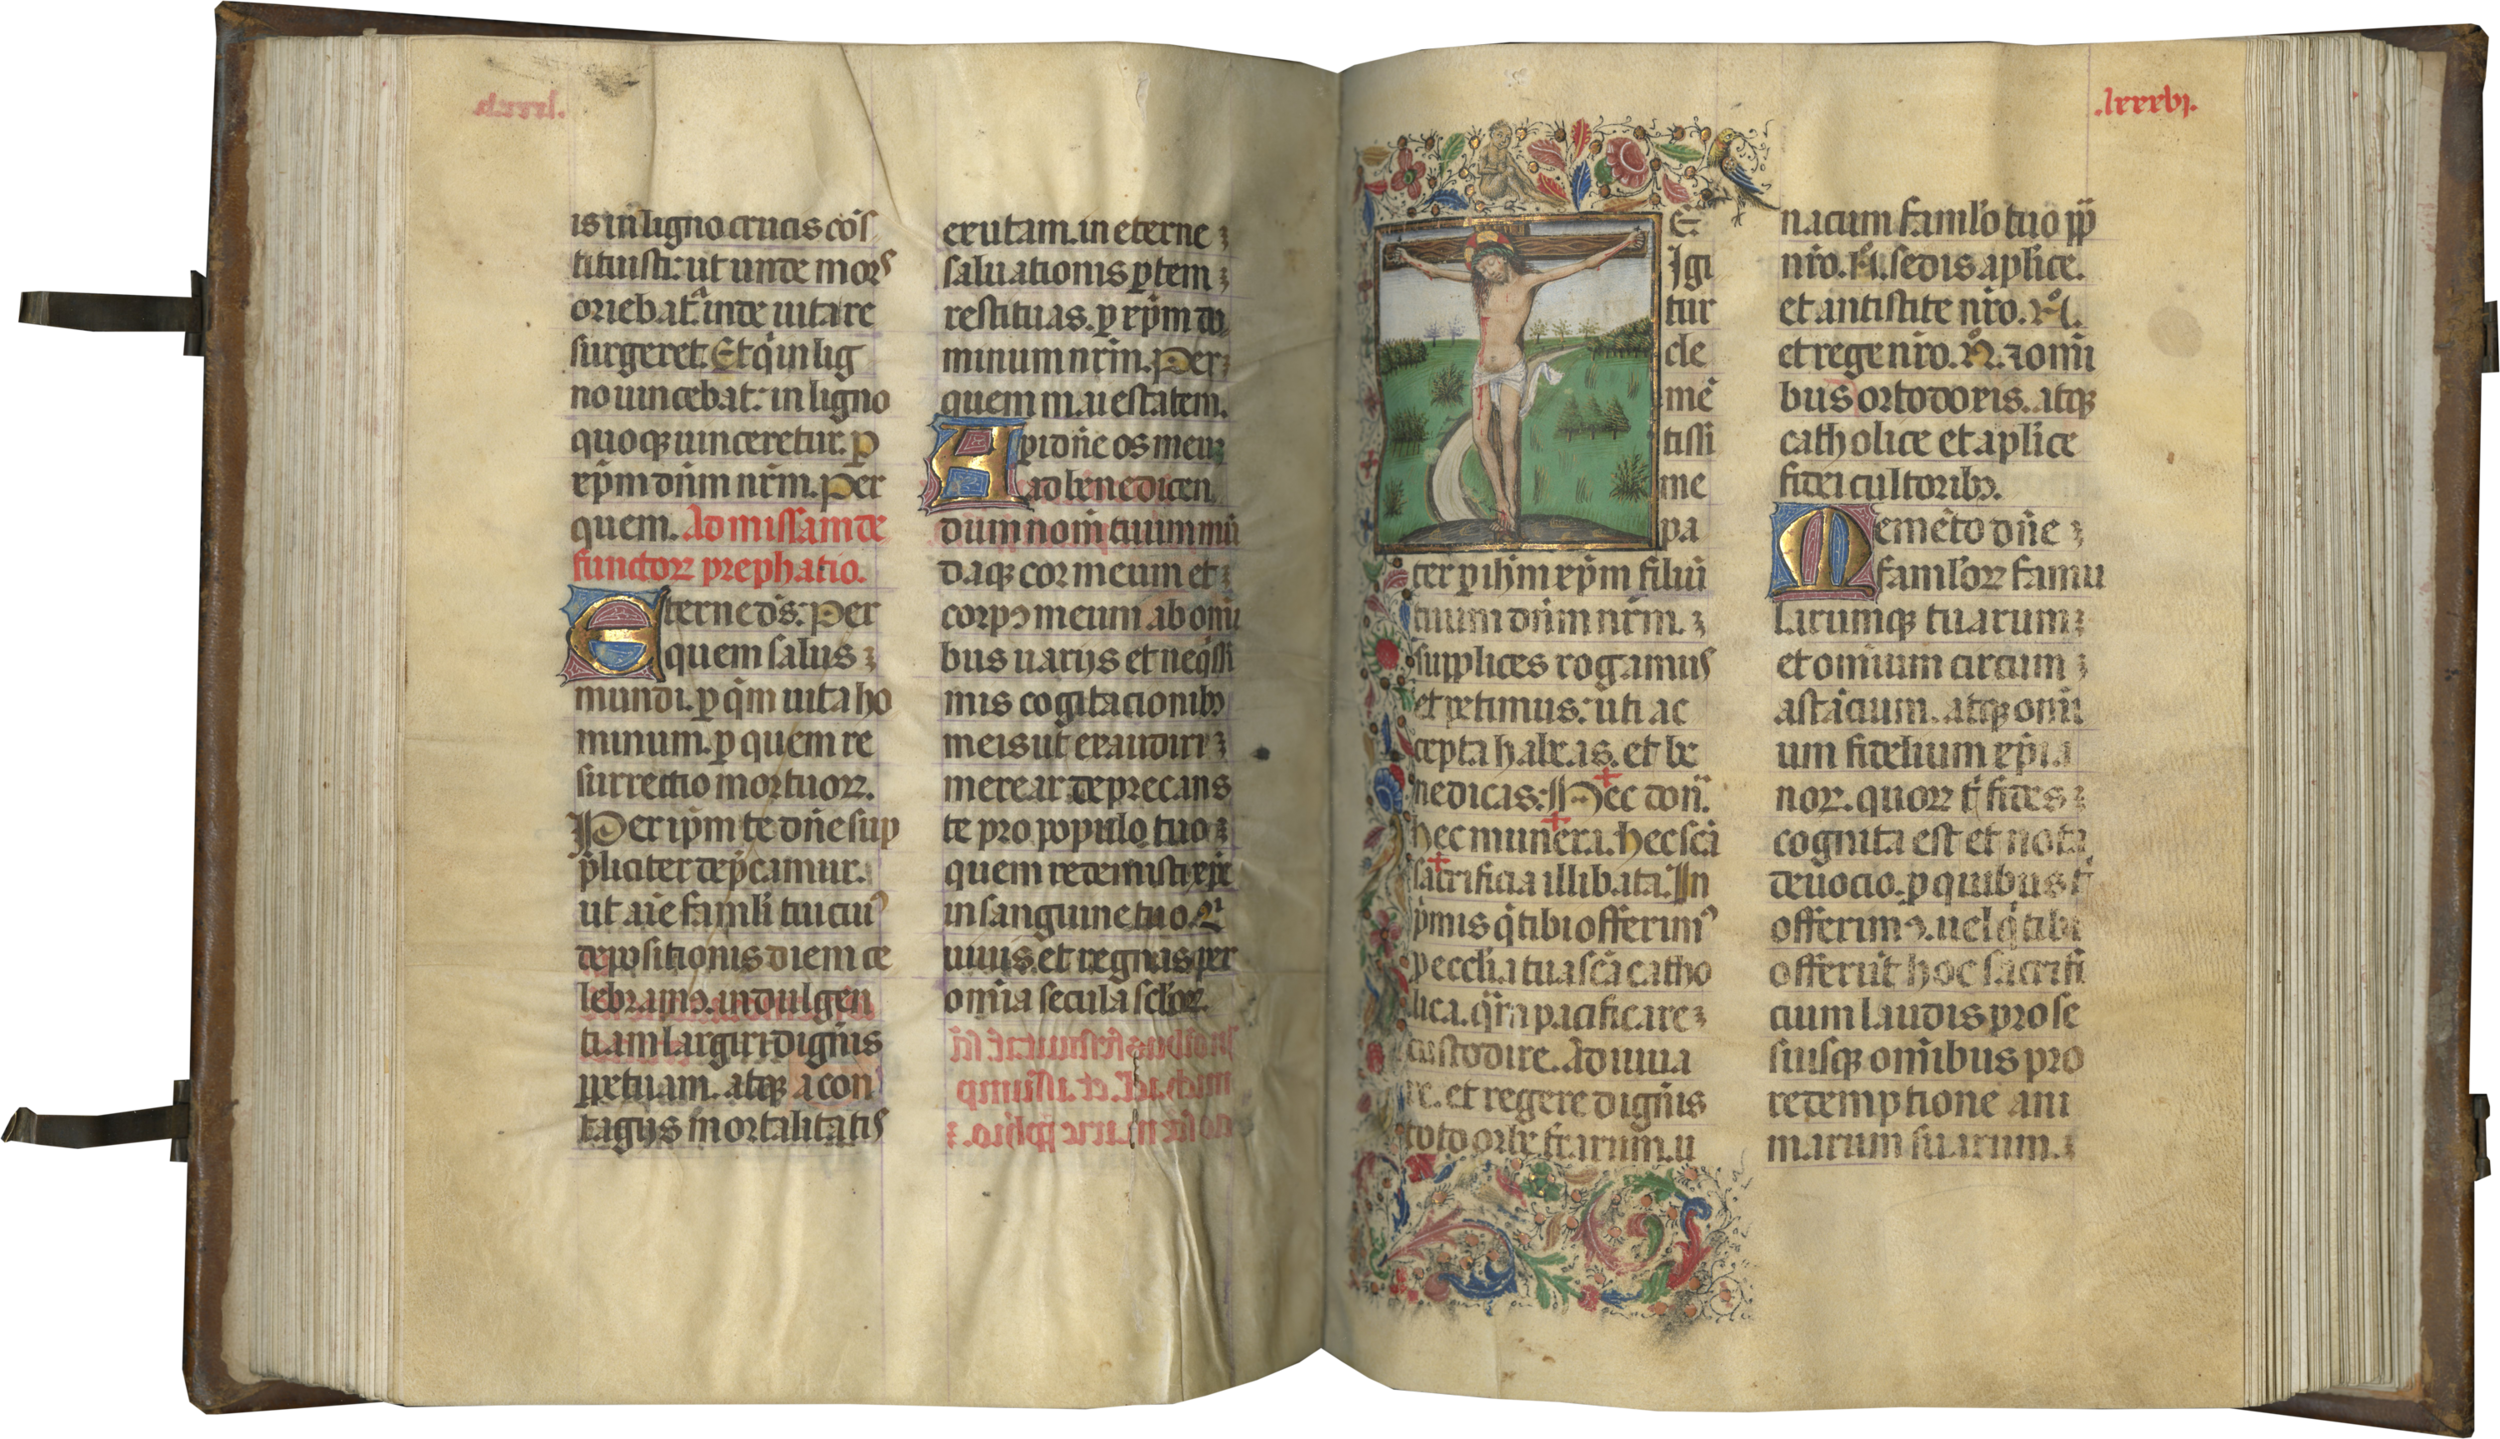 is in ligno crucis cōs
tituisti: ut unde mors
oriebat᷑ inde uita re
surgeret. Et q̄ in lig
no uincebat: in ligno
quoqꝫ uinceretur. p
xp̄m dn̄m nr̄m. Per
quem. Ad missam de
functorꝝ prephatio.
Eterne ds̄: Per
quem salus
mundi. p q̄m uita ho
minum. p quem re
surrectio mortuorꝝ.
Per ip̄m te dn̄e sup
pliciter dep̄camur.
ut aīe famli tui cuiꝰ
depositionis diem ce
lebramꝰ. indulgen
tiam largiri dignīs
ppetuam. atqꝫ a con
tagijs mortalitatis
exutam. in eterne
saluationis ptem
restituas. p xp̄m do
minum nr̄m. Per
quem m. uestatem.
Api dn̄e os meuꝫ
ad benedicen
dum nom̄ tuum mū
daqꝫ cor meum et
corpꝰ meum ab omī
bus uarijs et neq̄ssi
mis cogitacionibꝫ
meis ut exaudiri
merear deprecans
te pro populo tuo
quem redemisti xp̄e
in sanguine tuo. Qⁱ
uiuis et regnas per
om̄ia secula sclorꝝ.
.lxxxvi.
E
Igi
tur
cle
mē
tissi
me
pa
ter p ih̄m xp̄m filiū
tuum dn̄m nr̄m.
supplices rogamus
et petimus: uti ac
cepta habeas. et be
nedicas: Hec don̄.
hec munera. hec scā
sacrificia illibata. In
p̄mis q̄ tibi offerimꝰ
p eccl̄ia tua scā catho
lica. q̄m pacificare
custodire. Aduua
re. et regere dignīs
toto orbe trarum. u
na cum famlo tuo pp̄
nr̄o. N̊. sedis aplice.
et antistite nr̄o. N̊.
et rege nr̄o. N̊. ⁊ omī
bus ortodoxis. atqꝫ
catholice et aplice
fidei cultoribꝫ.
Memēto dn̄e
famlorꝝ famu
larumqꝫ tuarum
et omīum circum
astācium. atqꝫ omī
um fidelium xp̄ia
norꝝ. quorꝝ t̄ fides
cognita est et nota
deuocio. p quibus t̄
offerimꝰ. uel q̄ tibi
offerūt hoc sacrifi
cium laudis pro se
suisqꝫ omībus pro
redemptione ani
marum suarum.